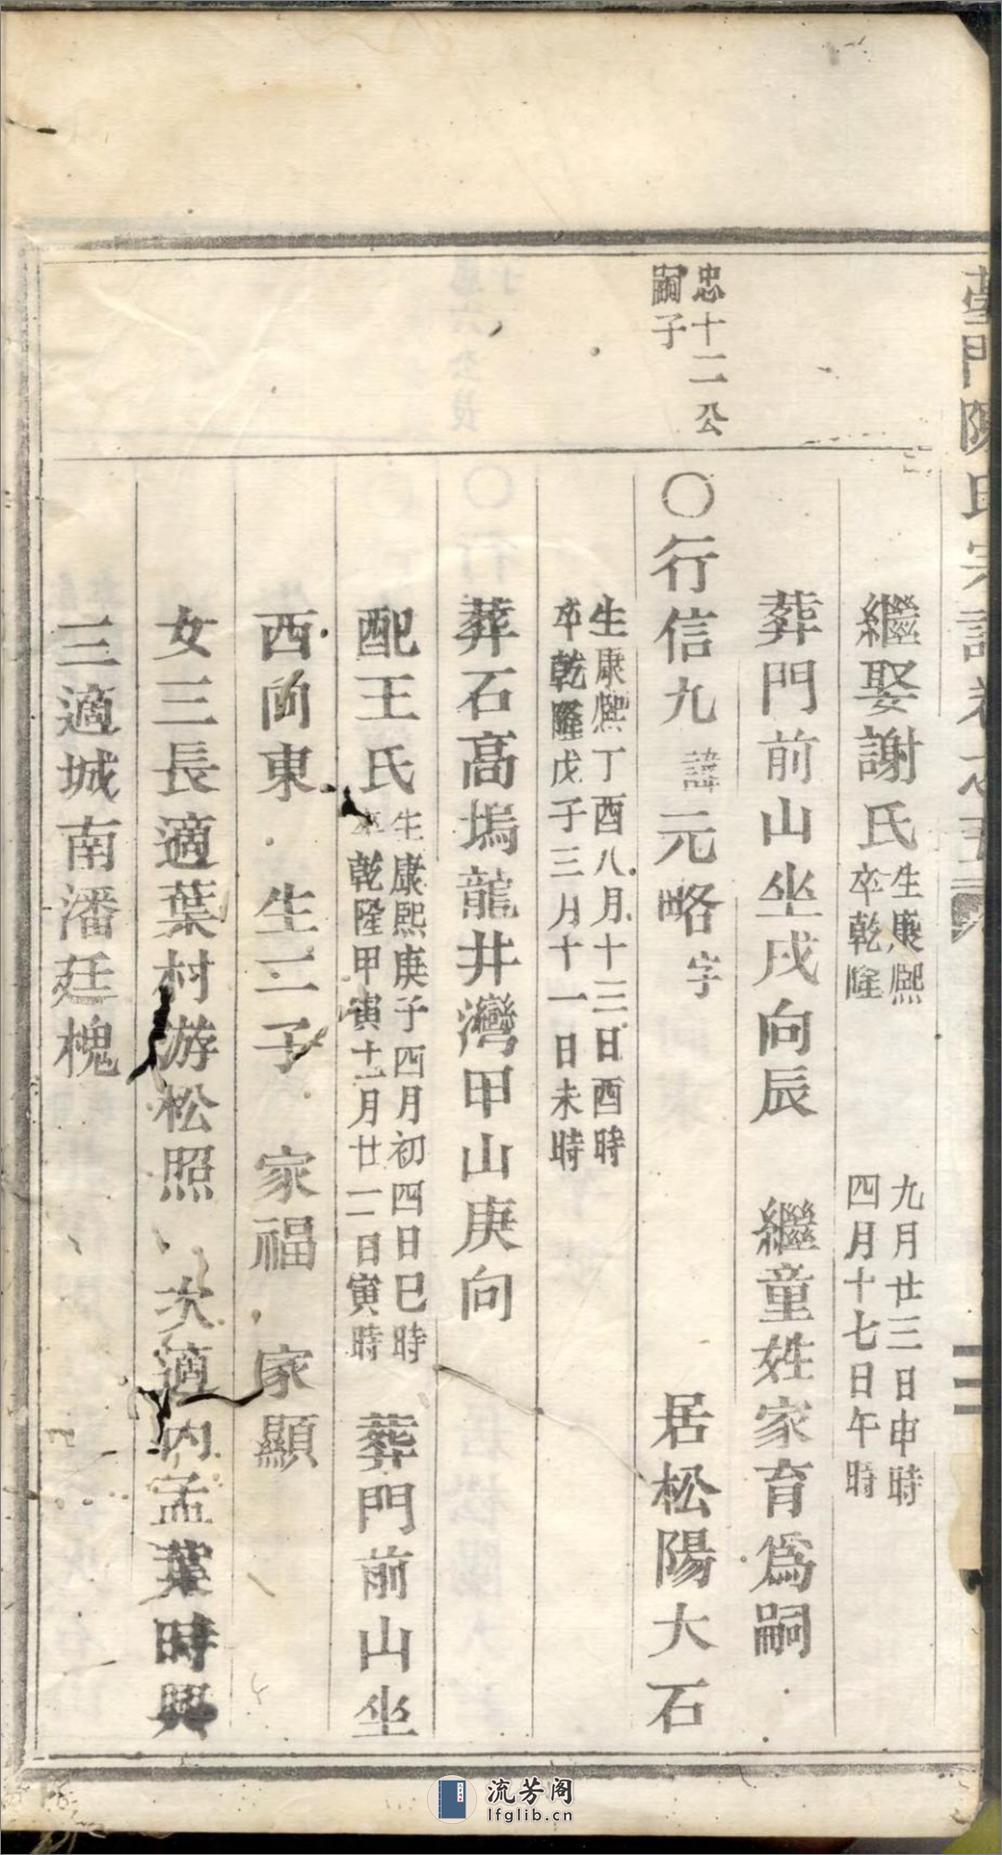 陳氏宗譜卷之五
繼娶謝氏生康熙 九月廿三日申時
卒乾隆 四月十七日午時
葬門前山坐戌向辰 繼童姓家育爲嗣
忠十二公
嗣子
〇行信九諱元略字 居松陽大石
生康熙丁酉八月十三日酉時
卒乾隆戊子三月十一日未時
葬石高塢龍井灣甲山庚向
配王氏生康熙庚子四月初四日巳時
卒乾隆甲寅十一月廿一日寅時 葬門前山坐
西向東 生二子 家福 家顯
女三長適葉村游松照 次適內孟葉時興
三適城南潘廷槐
流芳阁
lfglib.cn